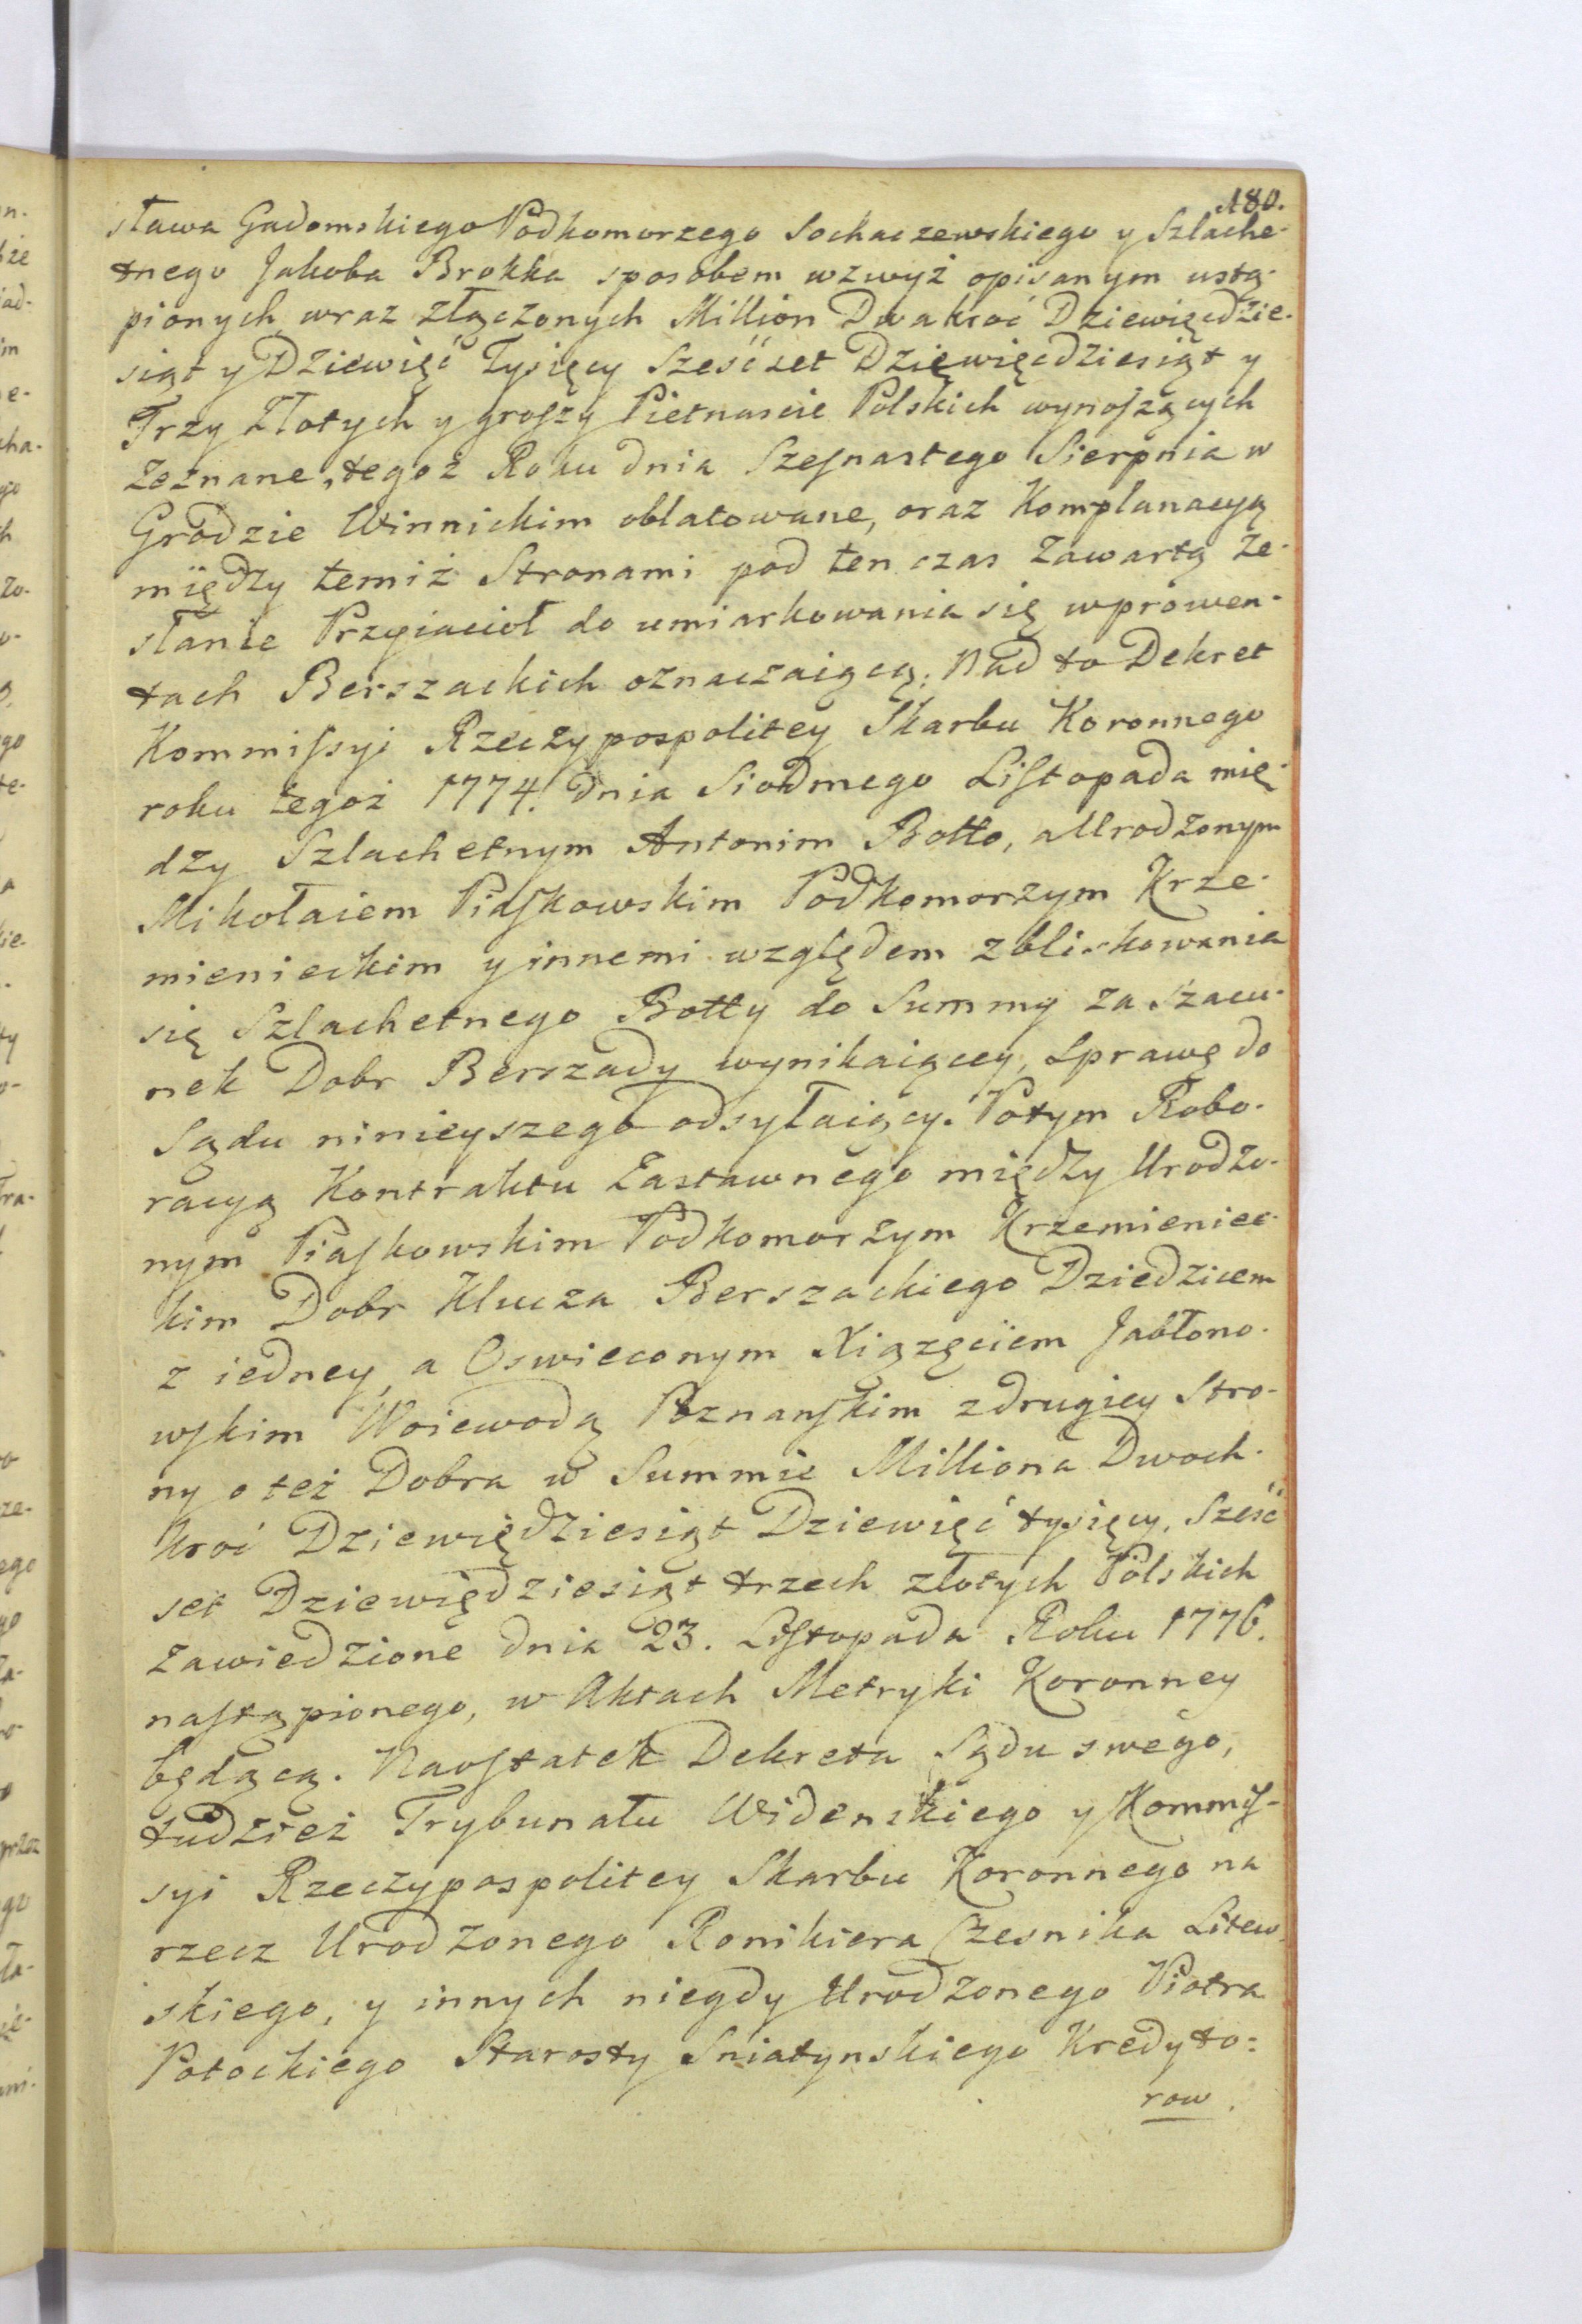 180.
sława Gadomskiego Podkomorzego Sochaczewskiego y Szlache-
tnego Jakoba Brokka sposobem wzwyż opisanym ustą-
pionych wraz złączonych Million Dwakroć Dziewięcdzie-
siąt y Dziewięć Tysięcy Sześćset Dzięwięcdziesiąt y
Trzy Złotych y groszy Pietnascie Polskich wynoszących
Zeznane, tegoż Roku dnia Szesnastego Sierpnia w
Grodzie Winnickim oblatowane, oraz Komplanacyą
między temiż Stronami pod ten czas Zawartą Ze-
słanie Przyiacioł do umiarkowania się wprowen-
tach Berszackich oznaczaiącą; Nad to Dekret
Kommissyi Rzeczypospolitey Skarbu Koronnego
roku tegoż 1774. dnia Siodmego Listopada mię-
dzy Szlachetnym Antonim Botto, a Urodzonym
Mikołaiem Piaskowskim Podkomorzym Krze-
mienieckim y innemi względem zbliskowania
się Szlachetnego Botty do Summy za szacu-
nek Dobr Berszady wynikaiącey, sprawę do
Sądu ninieyszego odsyłaiący. Potym Robo-
racyą Kontraktu Zastawnego między Urodzo-
nym Piaskowskim Podkomorzym Krzemieniec-
kim Dobr Klucza Berszackiego Dziedzicem
z iedney, a Oswieconym Xiązęciem Jabłono-
wskim Woiewodą Poznanskim z drugiey Stro-
ny o też Dobra w Summie Milliona Dwoch-
kroć Dziewiędziesiąt Dziewięć tysięcy, Sześć
set Dziewiędziesiąt trzech złotych Polskich
zawiedzione dnia 23. Listopada Roku 1776.
nastąpionego, w Aktach Metryki Koronney
będącą. Naostatek Dekreta Sądu swego,
tudzież Trybunału Widenskiego y Kommis-
syi Rzeczypospolitey Skarbu Koronnego na
rzecz Urodzonego Ronikiera Czesnika Litew
skiego, y innych niegdy Urodzonego Piotra
Potockiego Starosty Sniatynskiego Kredyto:
row.